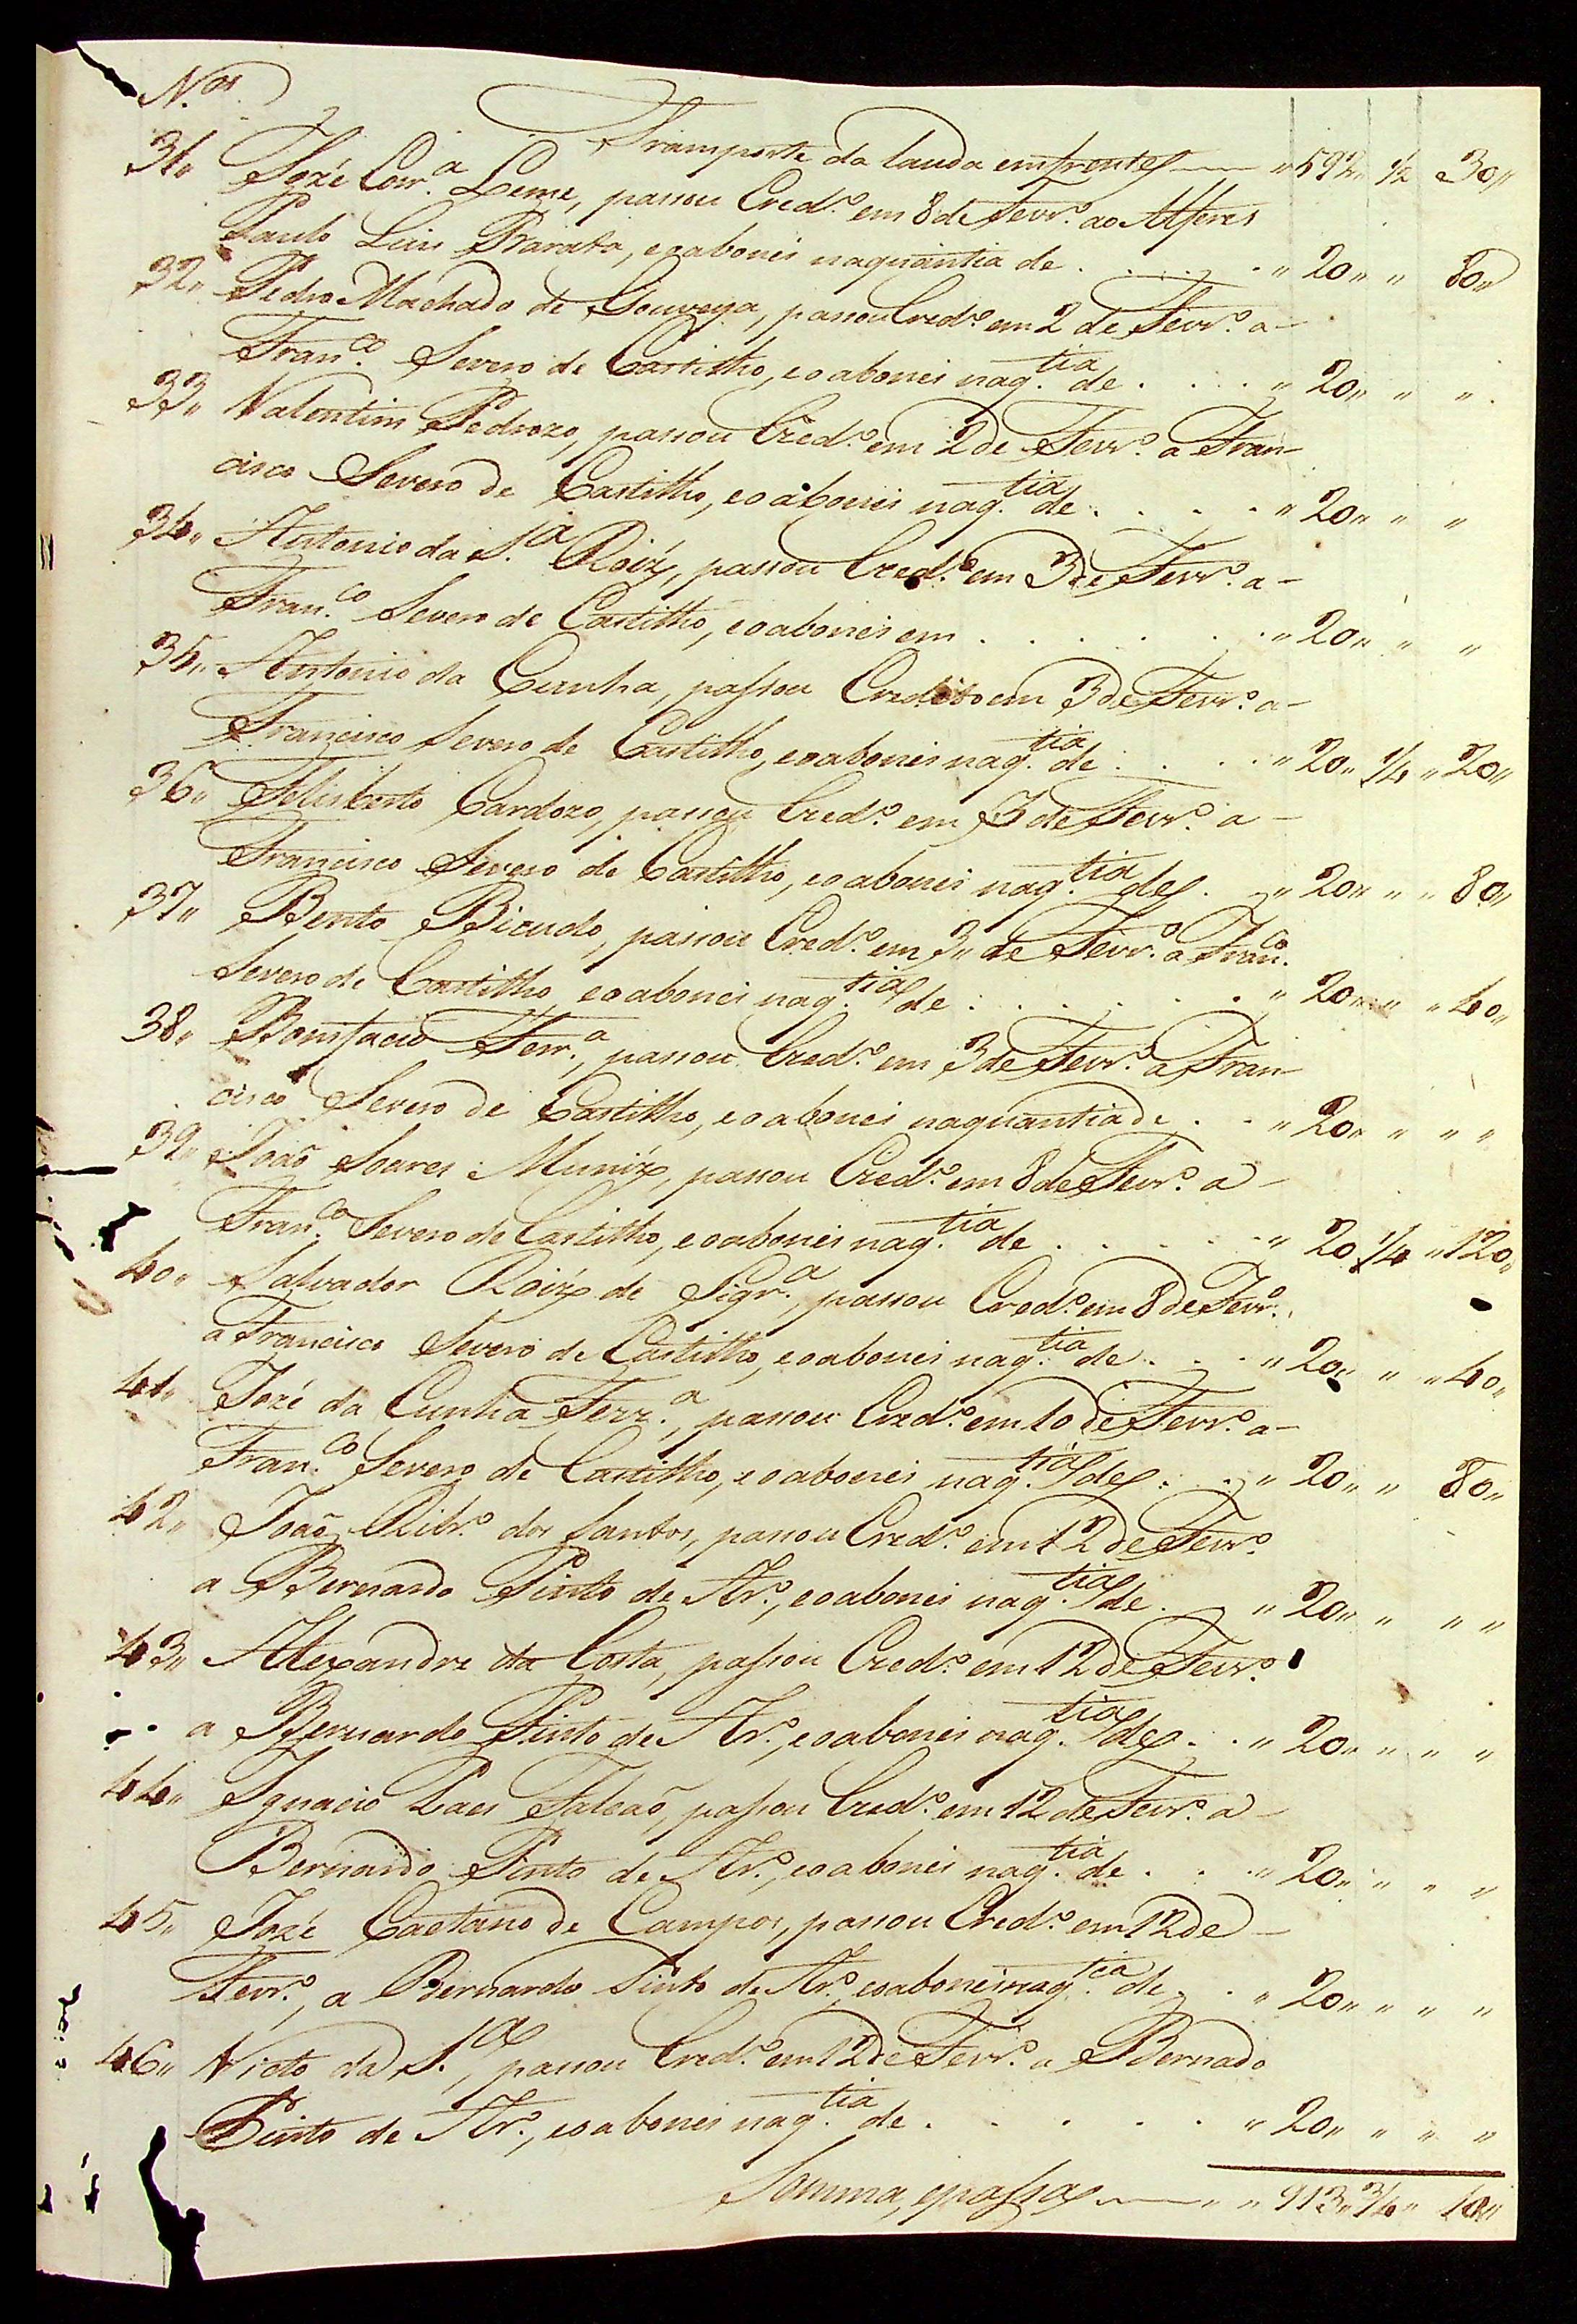 N.os
Transporte da lauda em frente — " 592 " 1/2 30 "
31 " Jozé Corr.a Leme, passou Cred.o em 8 de Fevr.o ao Alferes
Paulo Luis Barata, e o abonei na quantia de . . . . " 20 " " 80 "
32 " Pedro Machado de Gouveya, passou Cred.o em 2 de Fevr.o a -
Fran.co Severo de Castilho, e o abonei na q.tia de . . . " 20 " " " .
33 " Valentim Pedrozo, passou Cred.o em 2 de Fevr.o a Fran-
cisco Severo de Castilho, e o abonei na q.tia de . . . . " 20 " " "
34 " Antonio da S.a Roiz, passou Cred.o em 3 de Fevr.o a -
Fran.co Severo de Castilho, e o abonei em . . . . . . " 20 " " "
35 " Antonio da Cunha, passou Credito em 3 de Fevr.o a -
Francisco Severo de Castilho, e o abonei na q.tia de . . . " 20 " 1/4 " 20 "
36 " Felisberto Cardozo, passou Cred.o em 3 de Fevr.o a -
Francisco Severo de Castilho, e o abonei na q.tia de . " 20 " " " 80 "
37 " Bento Bicudo, passou Cred.o em 3 " de Fevr.o a Fran.co
Severo de Castilho, e o abonei na q.tia de . . . . . . " 20 " " " 40 "
38 " Bonifacio Ferr.a, passou Cred.o em 3 de Fevr.o a Fran-
cisco Severo de Castilho, e o abonei na quantia de . . " 20 " " " "
39 " João Soares Muniz, passou Cred.o em 8 de Fevr.o a -
Fran.co Severo de Castilho, e o abonei na q.tia de . . . . . " 20 1/4 " 120 "
40 " Salvador Roiz de Sigr.a, passou Cred.o em 8 de Fevr.o
a Francisco Severo de Castilho, e o abonei na q.tia de . . . " 20 " " " 40 "
41 " Jozé da Cunha Ferr.a, passou Cred.o em 10 de Fevr.o a -
Fran.co Severo de Castilho, e o abonei na q.tia de . . " 20 " " 80 "
42 " João Ribr.o dos Santos, passou Cred.o em 12 de Fevr.o
a Bernardo Pinto de Ar.o, e o abonei na q.tia de . " 20 " " " "
43 " Alexandre da Costa, passou Cred.o em 12 de Fevr.o
a Bernardo Pinto de Ar.o, e o abonei na q.tia de . . " 20 " " " "
44 " Ignacio Paes Falcaõ, passou Cred.o em 12 de Fevr.o a -
Bernardo Pinto de Ar.o, e o abonei na q.tia de . . . " 20 " " " "
45 " Jozé Caetano de Campos, passou Cred.o em 12 de -
Fevr.o, a Bernardo Pinto de Ar.o, e o abonei na q.tia de . " 20 " " " "
46 " Victo da S.a, passou Cred.o em 12 de Fevr.o a Bernado
Pinto de Ar.o, e o abonei na q.tia de . . . . . " 20 " " " "
Somma, e passa — " " 913 " 3/4 " 10 "